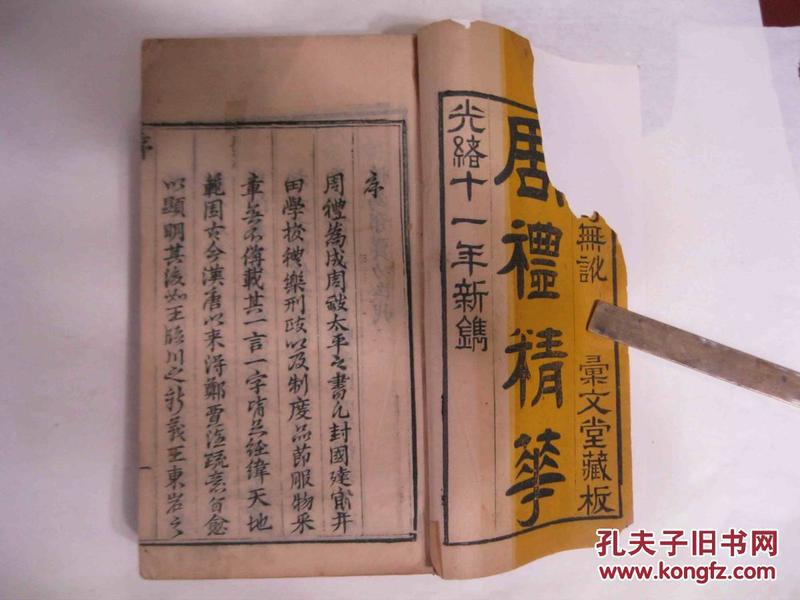 無訛
彙文堂藏板
周禮精華
光緒十一年新鐫
序
周禮為成周致太平之書凡封國建官井
田學校禮樂刑政以及制度品節服物采
章無不俻載其一言一字皆足經緯天地
範圍古今漢唐以來得鄭賈注疏意旨愈
以顯明其後如王臨川之新義王東岩之
孔夫子旧书网
www.kongfz.com